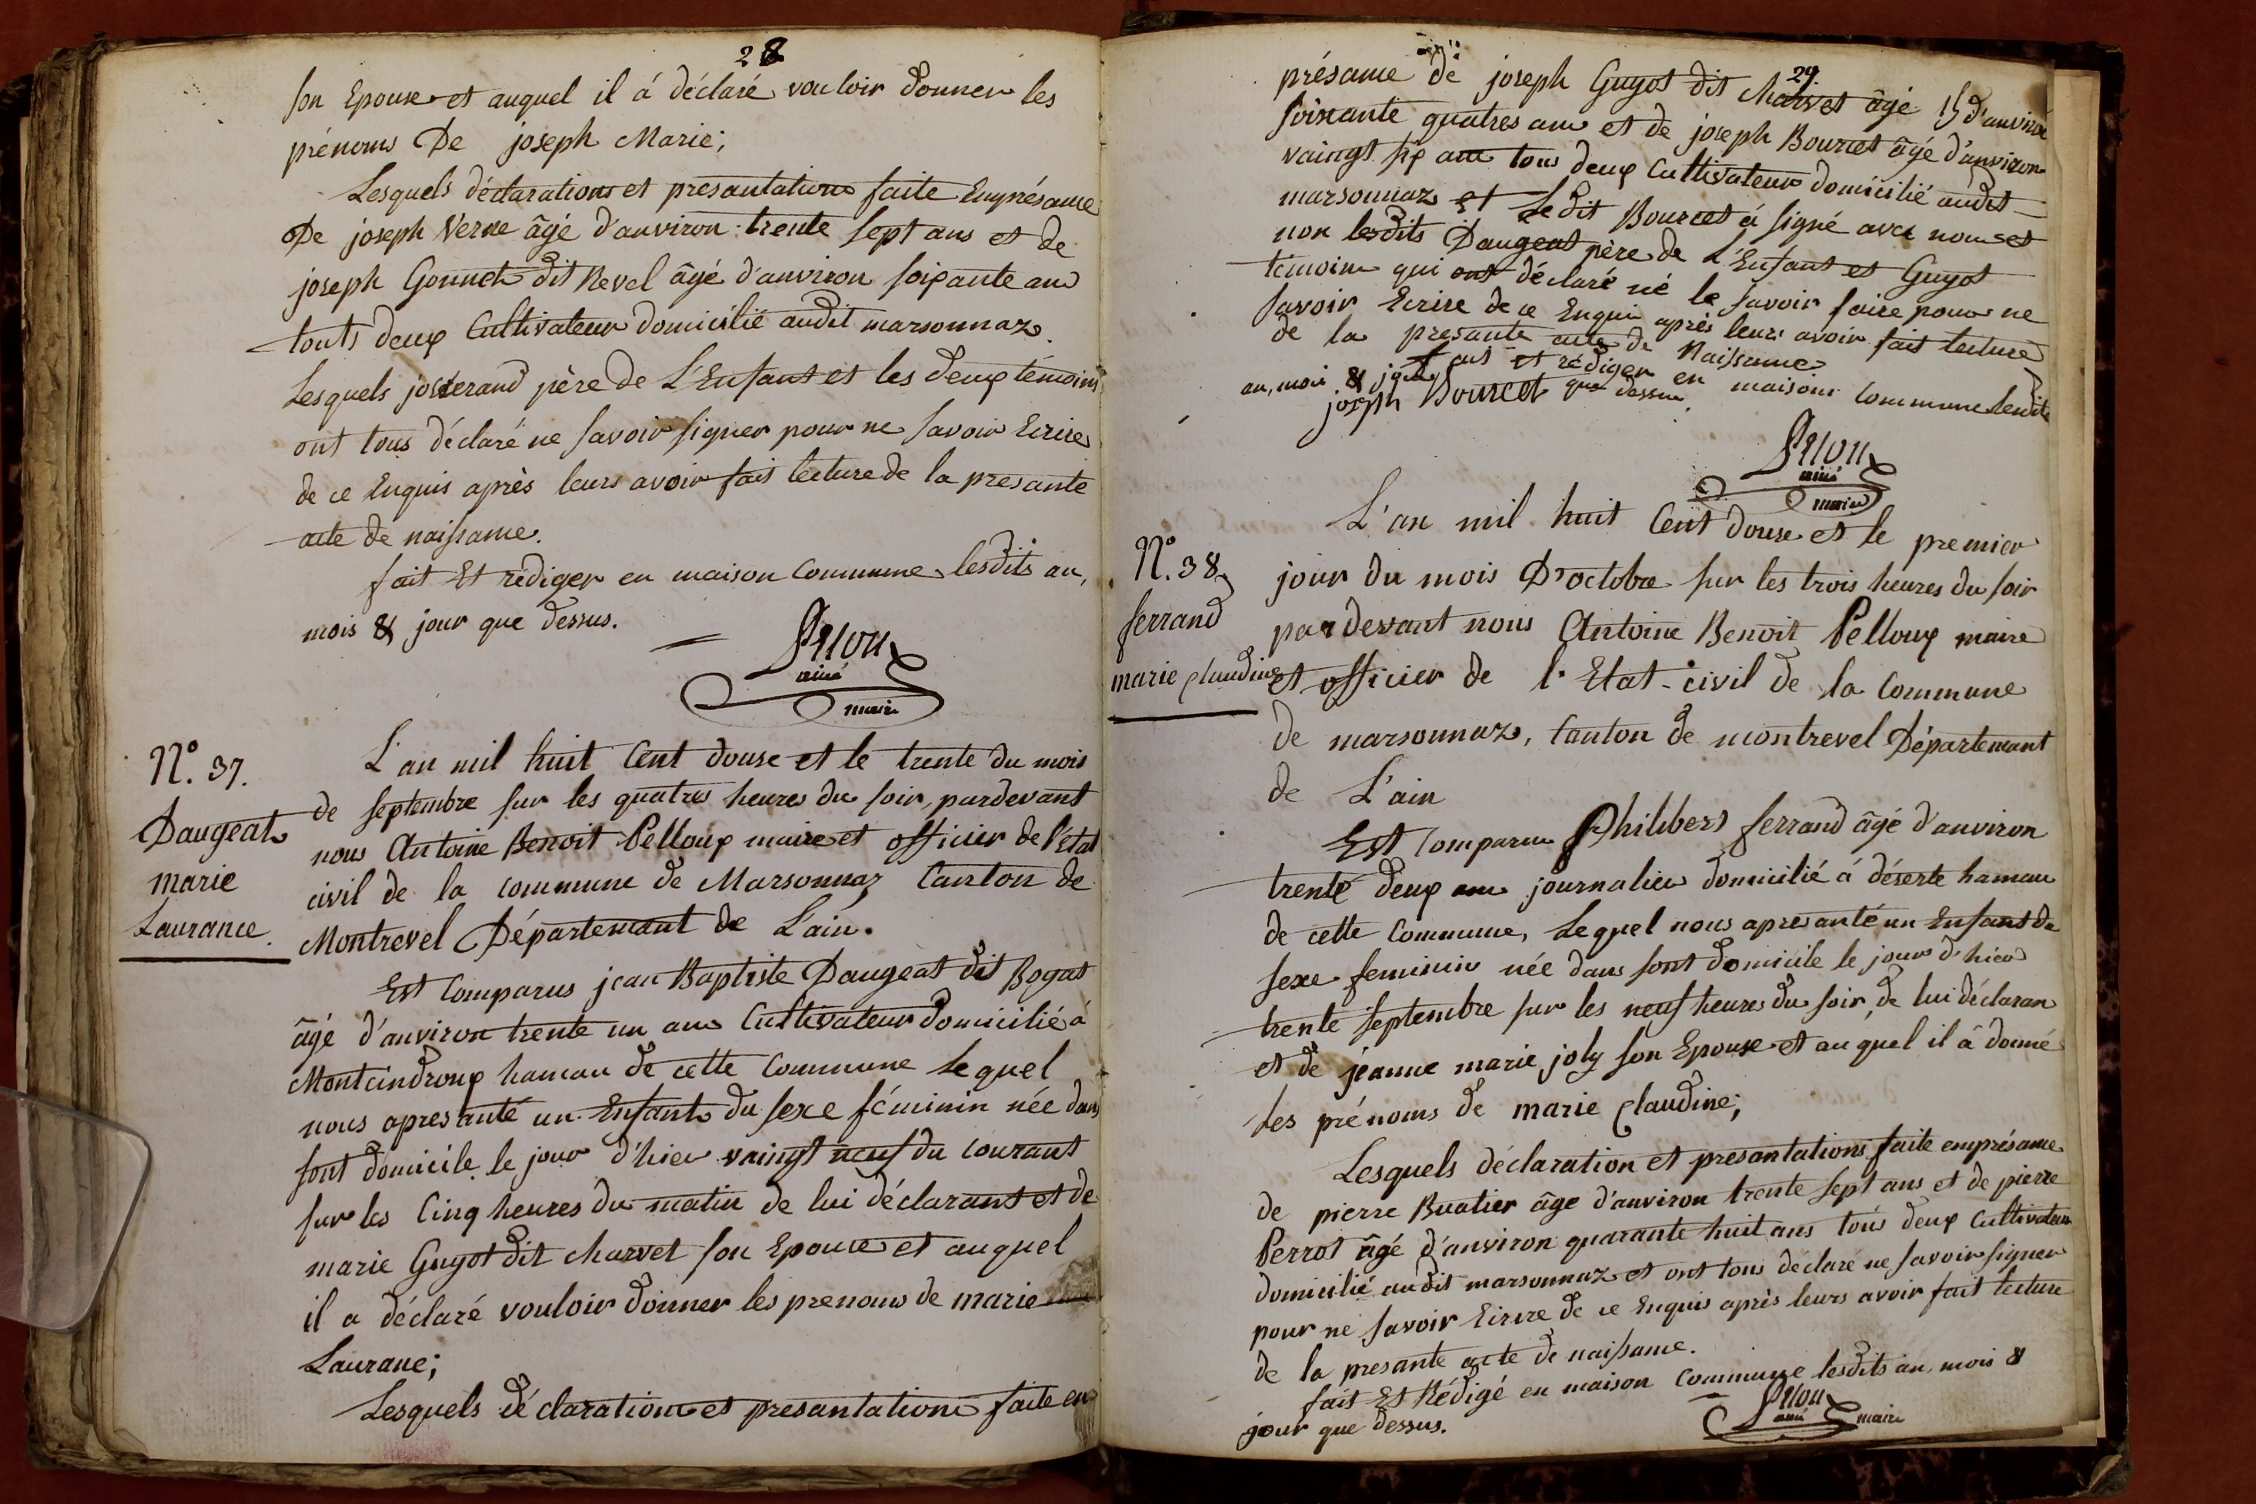 28
son Epouse et auquel il á déclaré vouloir donner les
prénoms De joseph Marie;
Lesquels déclarations et presantations faite Enprésance
De joseph Verne âgé d'anviron trente sept ans et de
joseph Gonnet dit Revel âgé d'anviron soixante ans
touts deux Cultivateur domicilié audit marsonnaz.
Lesquels josserand père de L'Enfant et les deux témoins
ont tous déclaré ne savoir signer pour ne savoir Ecrire
de ce Enquis après leurs avoir fait lecture de la presante
acte de naissance.
fait Et rédiger en maison Commune lesdits an,
mois & jour que dessus.
ainé
maire
N.° 37.
Daugeat
marie
Laurance.
L'an mil huit Cent douse et le trente du mois
de septembre sur les quatres heures du soir, pardevant
nous Antoine Benoit Pelloux maire et officier de l'état
civil de la commune de Marsonnaz Canton de
Montrevel Département de L'ain.
Est Comparus jean Baptiste Daugeat dit Bogat
âgé d'anviron trente un ans Cultivateur domicilié á
Montcindroux hamau de cette Commune Lequel
nous apresanté un Enfant du sexe féminin née dans
sont domicile le jour d'hier vaingt neuf du courant
sur les Cinq heures du matin de lui déclarant et de
marie Guyot dit Charvet son Epouse et auquel
il a déclaré vouloir donner les prenoms de marie
Laurane;
Lesquels déclarations et presantations faite en
29.
présance de joseph Guyot dit Charvet âgé d'anviron
soixante quatres ans et de joseph Bourcet âgé d'anviron
vaingt six ans tous deux Cultivateur domicilié audit
marsonnaz et Ledit Bourcet á signé avec nous et
non lesdits Daugeat père de L'Enfant et Guyot
témoins qui ont déclaré né le savoir faire pour ne
savoir Ecrire de ce Enquis après leurs avoir fait lecture
de la presante acte de Naissance
fait et rédiger en maisons Commune lesdits
an, mois & jour que dessus.
joseph Bourcet
ainé
maire
N.° 38.
ferrand
marie claudine
L'an mil huit Cent douse et le premier
jour du mois D'octobre sur les trois heures du soir
pardevant nous Antoine Benoit Pelloux maire
et officier de l'Etat-civil de la Commune
de marsonnaz, Canton de montrevel Département
de L'ain
Est Comparu Philibert ferrand âgé d'anviron
trente deux ans journalier domicilié á déserte hamau
de cette Commune, Lequel nous apresanté un Enfant du
sexe feminin née dans sont domicile le jour d'hier
trente septembre sur les neuf heures du soir, de lui déclaran
et de jeanne marie joly son Epouse et auquel il á donné
Les prénoms de marie Claudine;
Lesquels déclaration et presantations faite emprésance
de pierre Buatier âge d'anviron trente sept ans et de pierre
Perrot âgé d'anviron quarante huit ans tous deux Cultivateur
domicilié audit marsonnaz et ont tous déclaré ne savoir signer
pour ne savoir Ecrire de ce Enquis après leurs avoir fait lecture
de la presante acte de naissance.
fait Et Rédigé en maison Commune lesdits an, mois &
jour que dessus.
ainé maire